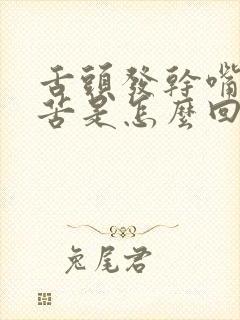 舌頭發幹嘴
苦是怎麼回
兔尾君